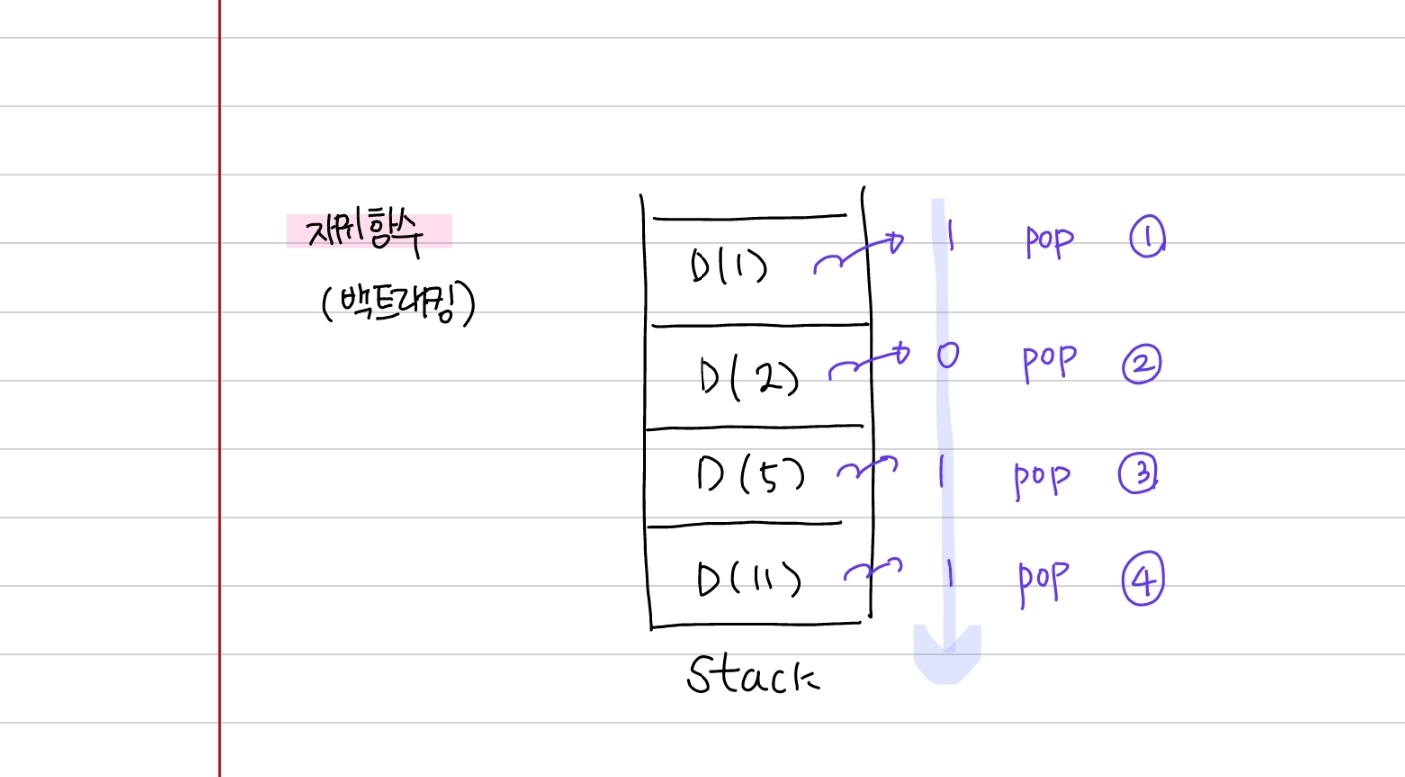 재귀함수
(백트래킹)
D(1) 1 pop ①
D(2) 0 pop ②
D(5) 1 pop ③
D(11) 1 pop ④
Stack